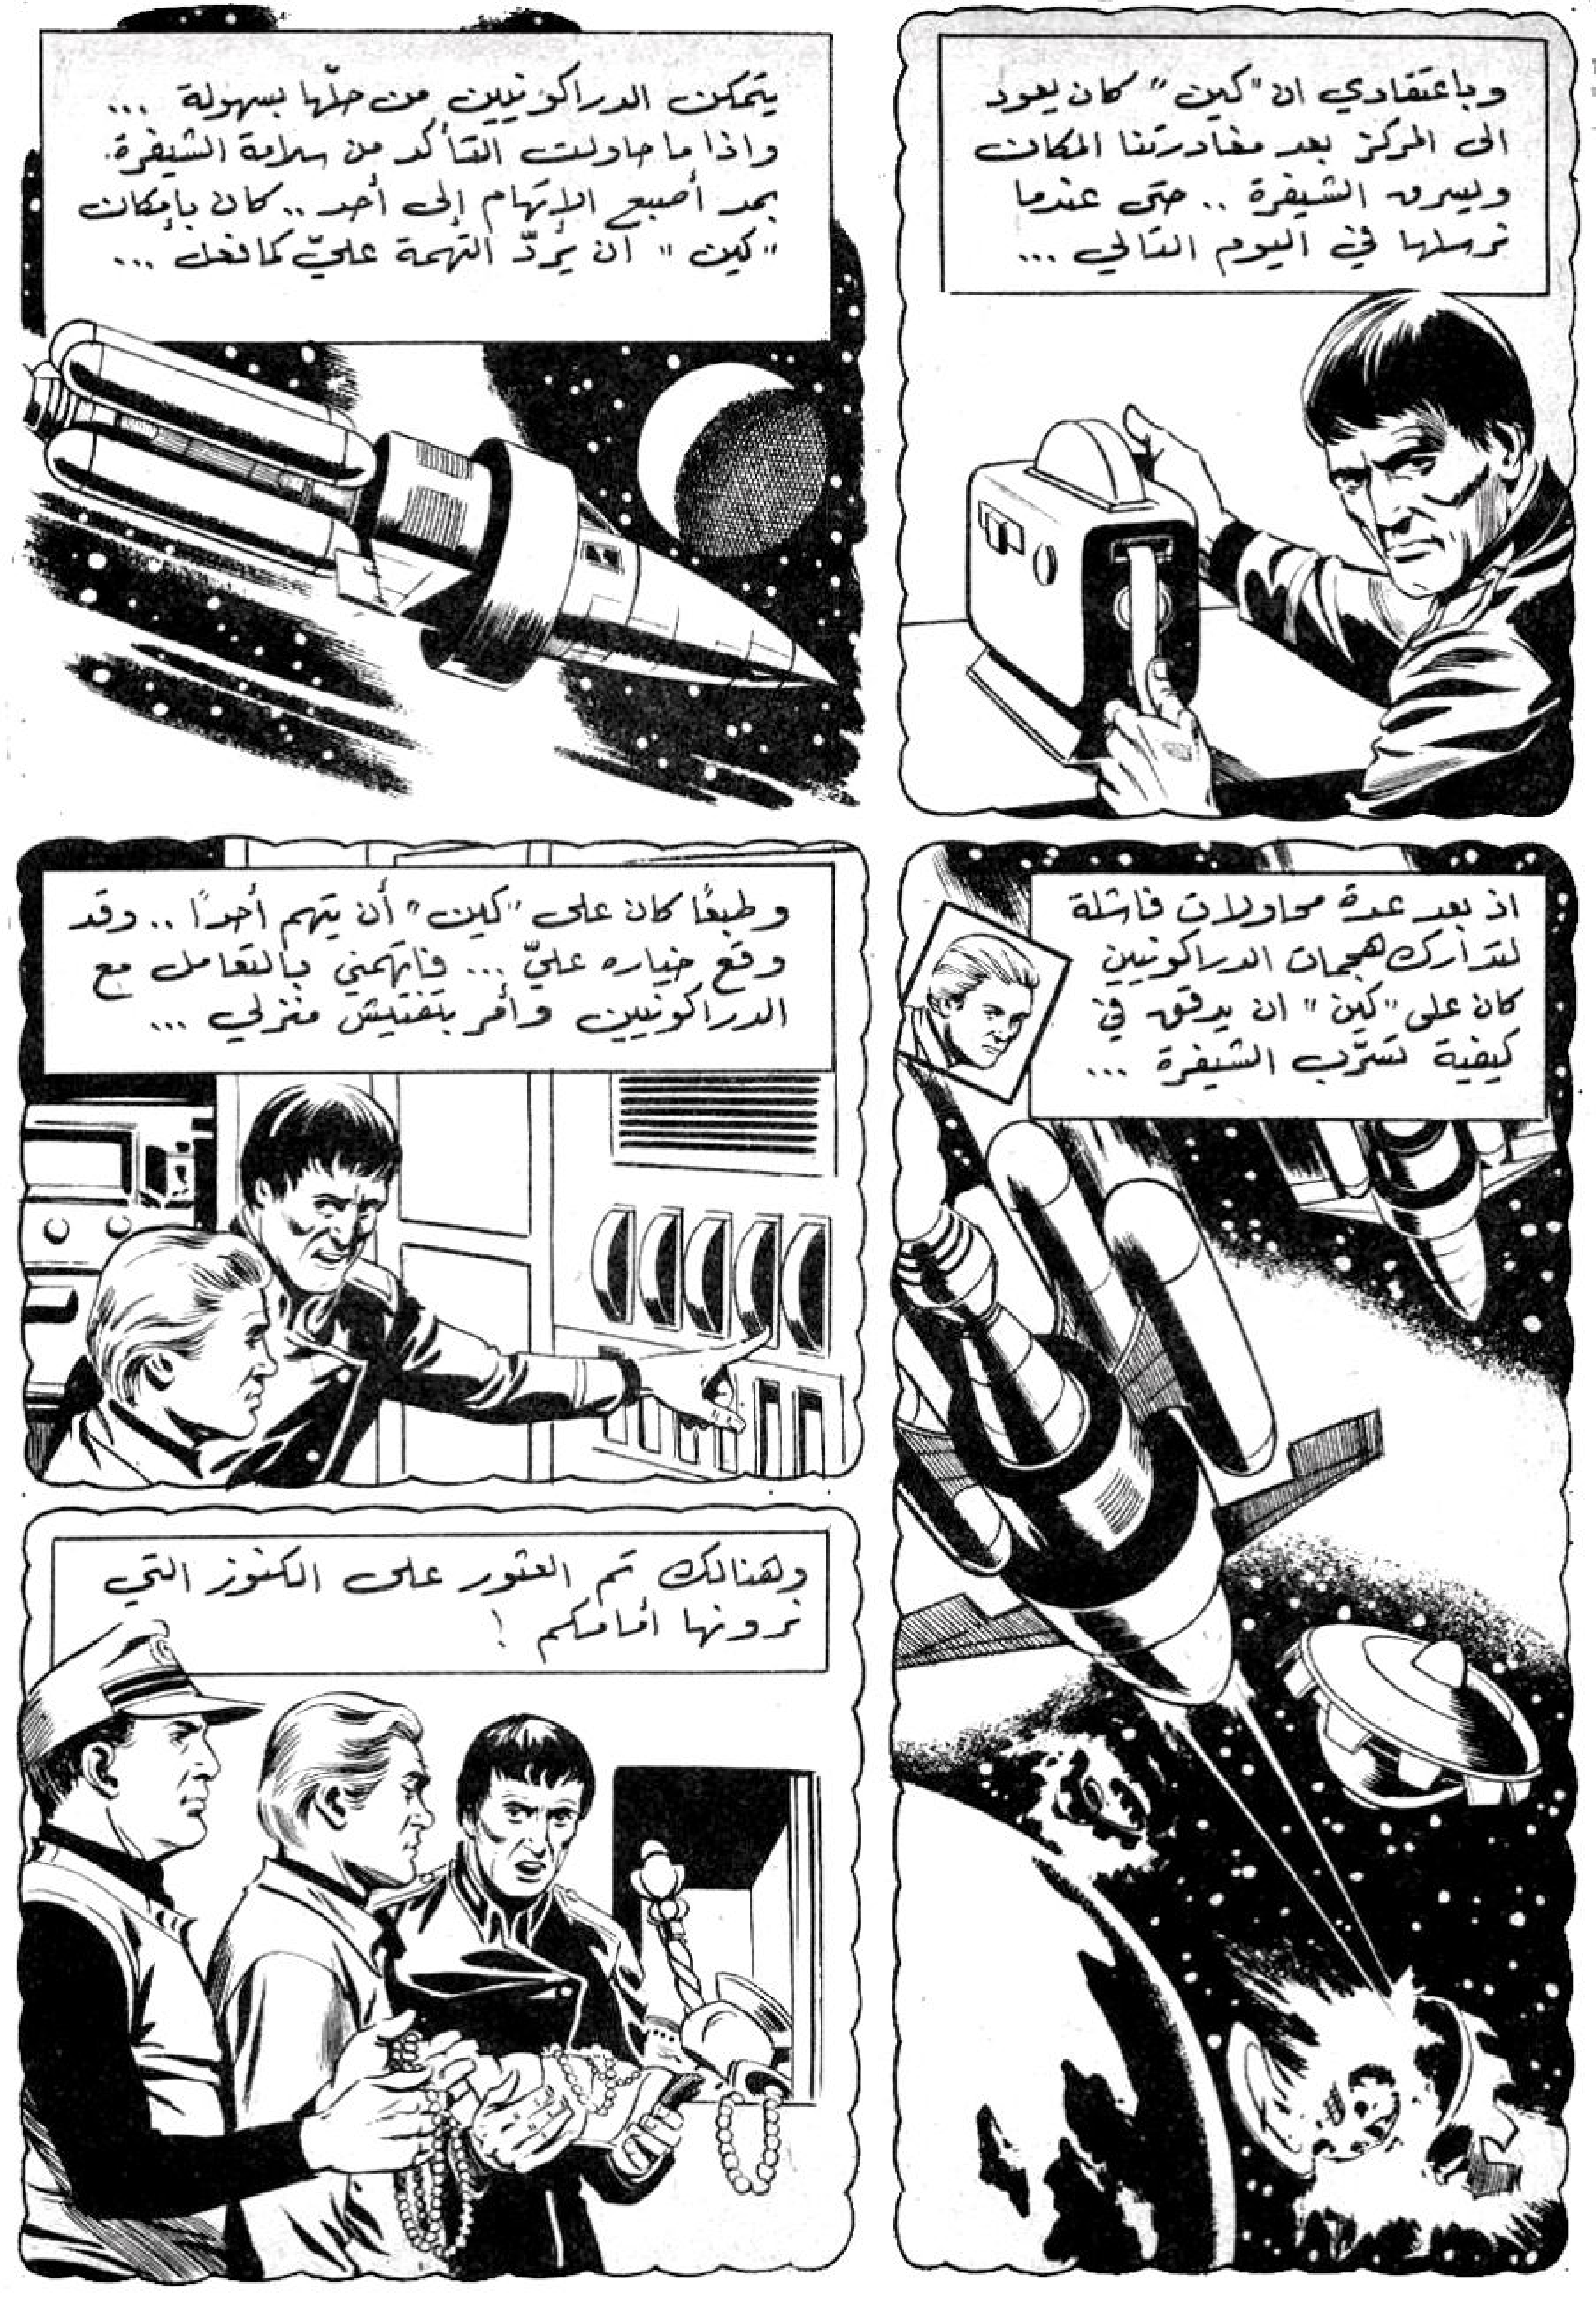 وباعتقادي ان "كين" كان يعود
الى المركز بعد مغادرتنا المكان
ويسرق الشيفرة .. حتى عندما
نرسلها في اليوم التالي ...
يتمكن الدراكونيين من حلّها بسهولة ...
واذا ما حاولت التأكد من سلامة الشيفرة.
بمد أصبع الإتهام إلى أحد .. كان بإمكان
"كين" ان يردّ التهمة عليّ كما فعل ...
اذ بعد عدة محاولات فاشلة
لتدارك هجمات الدراكونيين
كان على "كين" ان يدقق في
كيفية تسرّب الشيفرة ...
وطبعًا كان على "كين" أن يتهم أحدًا .. وقد
وقع خياره عليّ ... فاتهمني بالتعامل مع
الدراكونيين وأمر بتفتيش منزلي ...
وهنالك تم العثور على الكنوز التي
ترونها أمامكم !